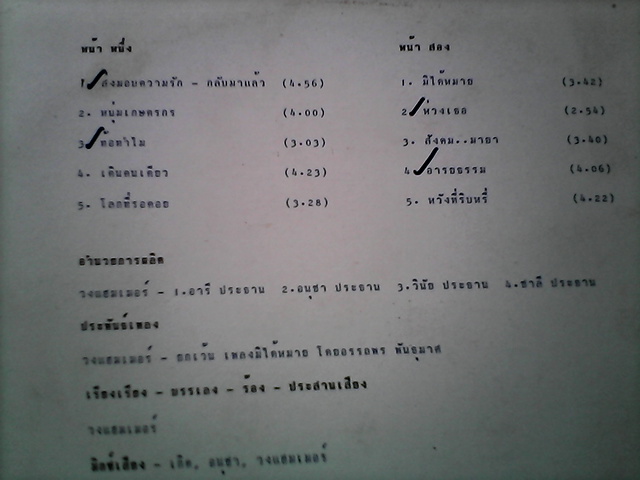 หน้า หนึ่ง
1. ส่งมอบความรัก - กลับมาแล้ว (4.56)
2. หนุ่มเกษตรกร (4.00)
3. ท้อทำไม (3.03)
4. เดินคนเดียว (4.23)
5. โลกที่รอคอย (3.28)
หน้า สอง
1. มิได้หมาย (3.42)
2. ห่วงเธอ (2.54)
3. สังคม..มายา (3.40)
4. อารยธรรม (4.06)
5. หวังที่ริบหรี่ (4.22)
อำนวยการผลิต
วงแฮมเมอร์ - 1.อารี ประธาน 2.อนุชา ประธาน 3.วินัย ประธาน 4.ชาลี ประธาน
ประพันธ์เพลง
วงแฮมเมอร์ - ยกเว้น เพลงมิได้หมาย โดยอรรถพร พันธุมาศ
เรียงเรียง - บรรเลง - ร้อง - ประสานเสียง
วงแฮมเมอร์
มิกซ์เสียง - เถิด, อนุชา, วงแฮมเมอร์